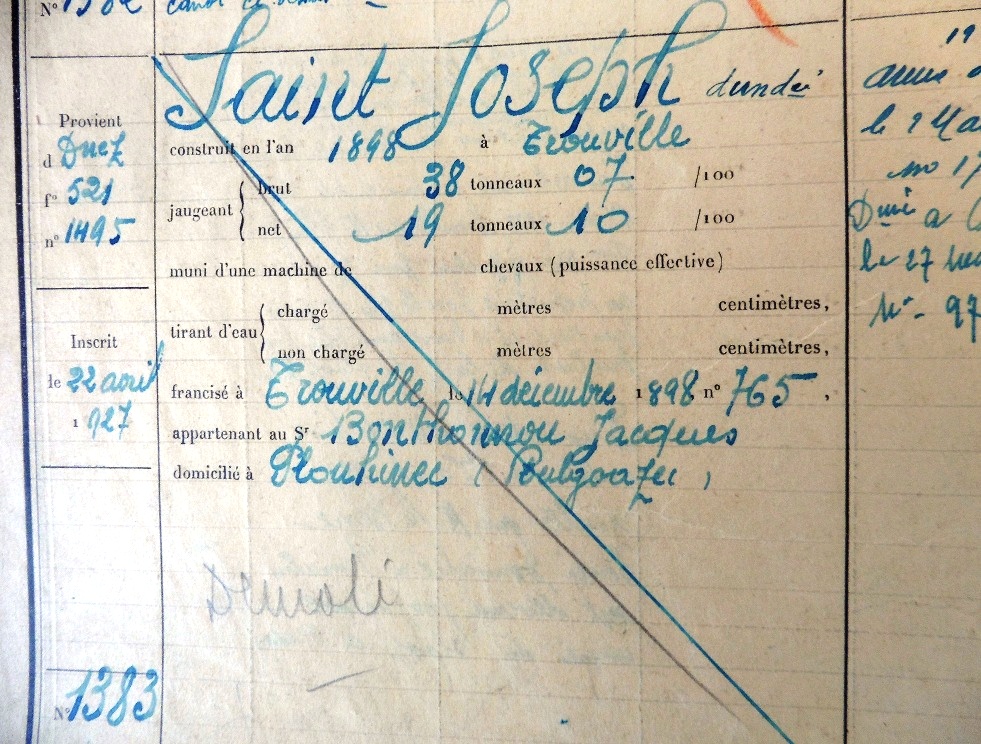 N° 1382
Saint Joseph dundée
Provient
d Duez
f° 521
n° 1495
construit en l'an 1898 à Trouville
jaugeant
brut 38 tonneaux 07 /100
net 19 tonneaux 10 /100
muni d'une machine de chevaux (puissance effective)
tirant d'eau
chargé mètres centimètres,
non chargé mètres centimètres,
Inscrit
le 22 avril
1927
francisé à Trouville le 14 décembre 1898 n° 765,
appartenant au Sr Bonthonnou Jacques
domicilié à Plouhinec (Poulgoazec)
Démoli
N° 1383
19
le 2 Mai
no 17
le 27
N° - 97